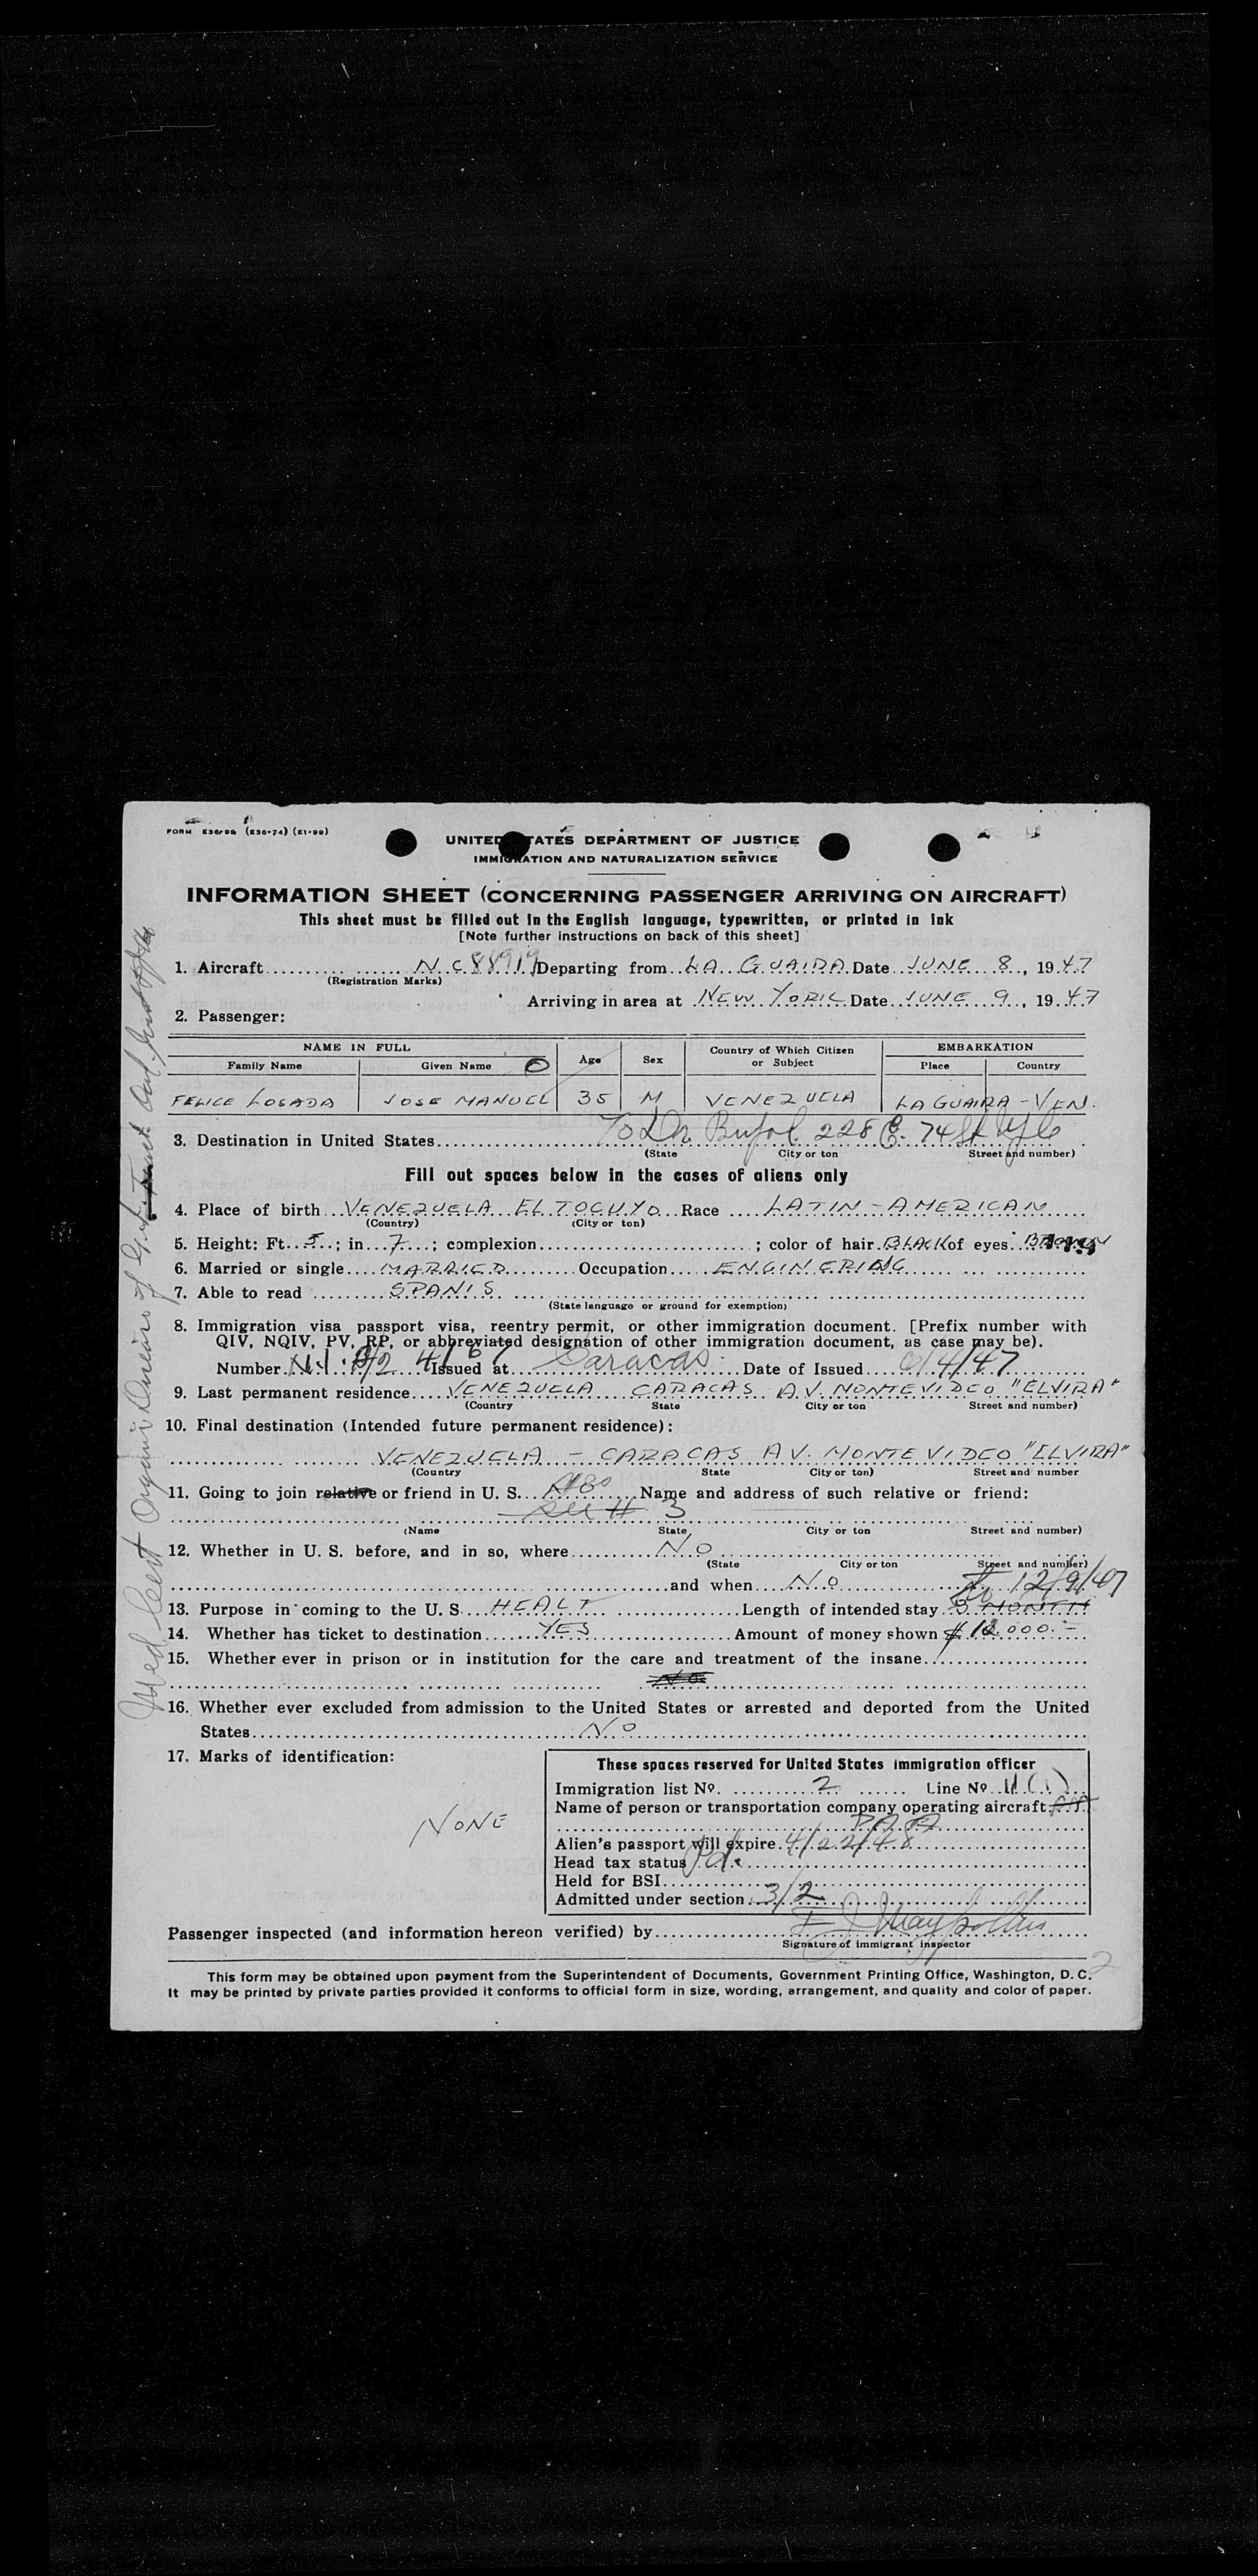 FORM E36-99 (E36-74) (E1-99)
UNITED STATES DEPARTMENT OF JUSTICE
IMMIGRATION AND NATURALIZATION SERVICE
INFORMATION SHEET (CONCERNING PASSENGER ARRIVING ON AIRCRAFT)
This sheet must be filled out in the English language, typewritten, or printed in ink
[Note further instructions on back of this sheet]
1. Aircraft NC 88919 Departing from LA GUAIRA Date JUNE 8, 1947
(Registration Marks)
Arriving in area at NEW YORK Date JUNE 9, 1947
2. Passenger:
NAME IN FULL Age Sex Country of Which Citizen or Subject EMBARKATION
Family Name Given Name Place Country
FELICE LOSADA JOSE MANUEL 35 M VENEZUELA LA GUAIRA - VEN.
3. Destination in United States To Dr. 228 E. 74 St
(State City or ton Street and number)
Fill out spaces below in the cases of aliens only
4. Place of birth VENEZUELA EL TOCUYO Race LATIN-AMERICAN
(Country) (City or ton)
5. Height: Ft. 5; in 7; complexion ; color of hair BLACK of eyes BROWN
6. Married or single MARRIED Occupation ENGINERING
7. Able to read SPANIS
(State language or ground for exemption)
8. Immigration visa passport visa, reentry permit, or other immigration document. [Prefix number with
QIV, NQIV, PV, RP, or abbreviated designation of other immigration document, as case may be).
Number Issued at Caracas Date of Issued 6/4/47
9. Last permanent residence VENEZUELA CARACAS AV. MONTEVIDEO "ELVIRA"
(Country State City or ton Street and number)
10. Final destination (Intended future permanent residence):
VENEZUELA - CARACAS AV. MONTEVIDEO "ELVIRA"
(Country State City or ton) Street and number
11. Going to join relative or friend in U. S. Name and address of such relative or friend:
See # 3
(Name State City or ton Street and number)
12. Whether in U. S. before, and in so, where NO
(State City or ton Street and number)
and when NO
12/9/47
13. Purpose in coming to the U. S. HEALT Length of intended stay 3 MONTH
14. Whether has ticket to destination YES Amount of money shown $ 10.000.-
15. Whether ever in prison or in institution for the care and treatment of the insane
NO
16. Whether ever excluded from admission to the United States or arrested and deported from the United
States NO
17. Marks of identification:
NONE
These spaces reserved for United States immigration officer
Immigration list No. 2 Line No 11 (1)
Name of person or transportation company operating aircraft
PAA
Alien's passport will expire 4/22/48
Head tax status Pd.
Held for BSI
Admitted under section 3/2
Passenger inspected (and information hereon verified) by
Signature of immigrant inspector
2
This form may be obtained upon payment from the Superintendent of Documents, Government Printing Office, Washington, D. C.
It may be printed by private parties provided it conforms to official form in size, wording, arrangement, and quality and color of paper.